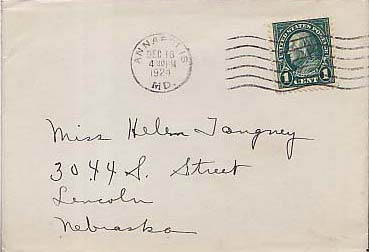 ANNAPOLIS
DEC 18
4 30 PM
1924
MD.
UNITED STATES POSTAGE
1 1
CENT
Miss Helen Tangney
3044 S. Street
Lincoln
Nebraska